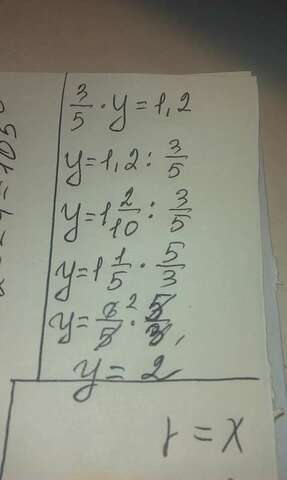 3/5 · y = 1,2
y = 1,2 : 3/5
y = 1 2/10 : 3/5
y = 1 1/5 · 5/3
y = 6²/5 · 5/3,
y = 2
x = 1